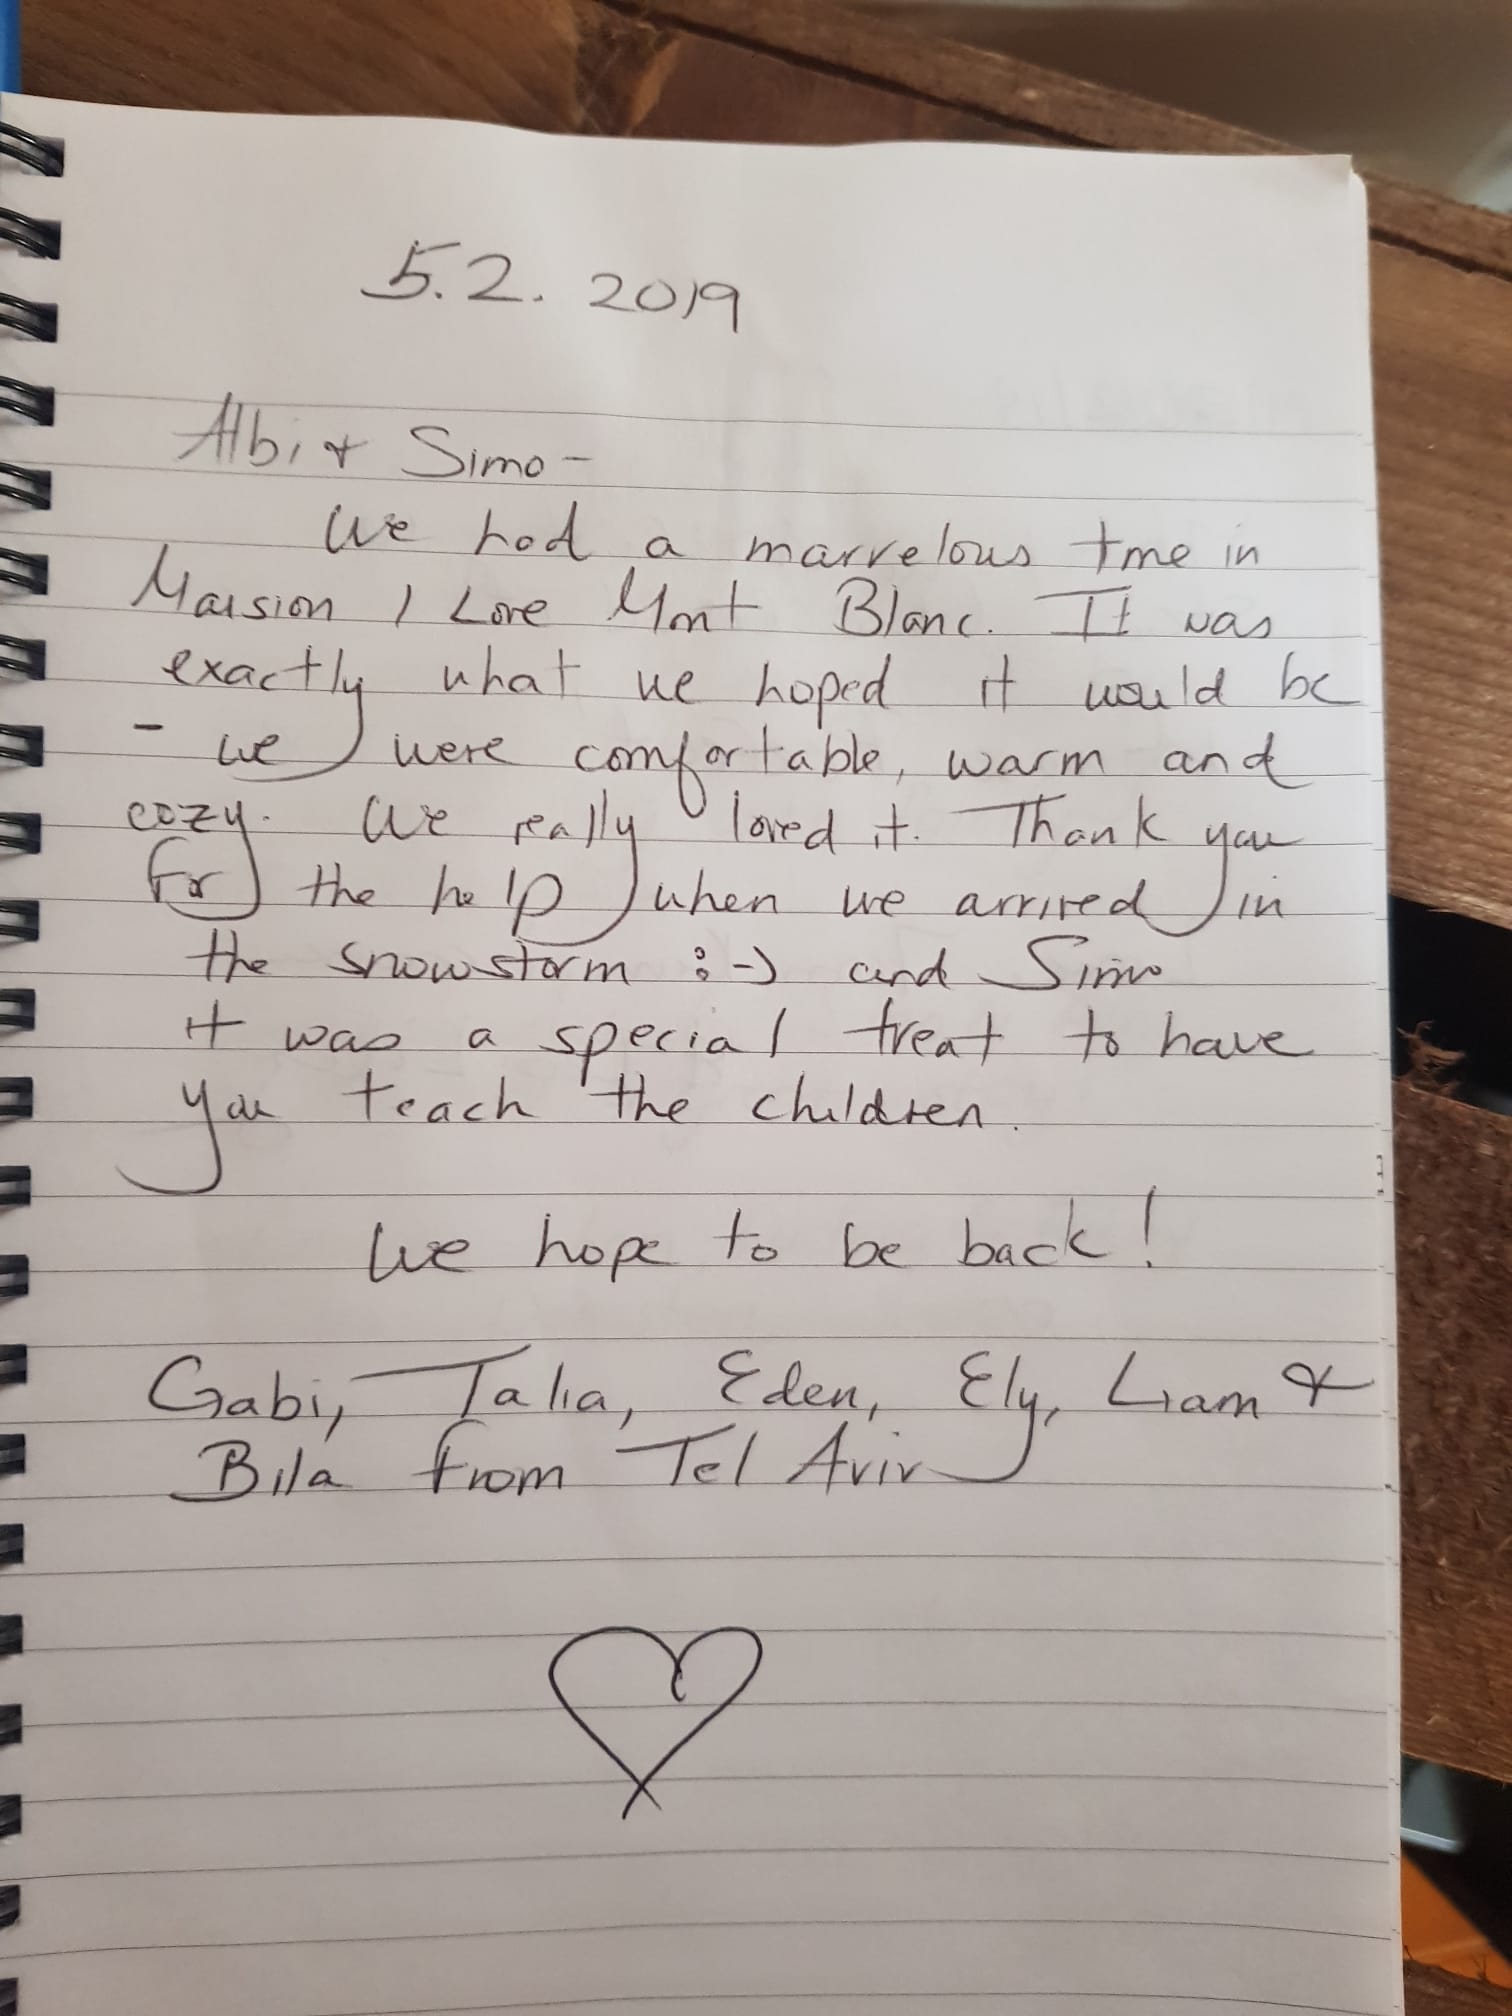 5.2. 2019
Albi & Simo -
We had a marvelous time in
Maision I Love Mont Blanc. It was
exactly what we hoped it would be
- we were comfortable, warm and
cozy. We really loved it. Thank you
for the help when we arrived in
the snowstorm :-) and Simo
it was a special treat to have
you teach the children.
We hope to be back!
Gabi, Talia, Eden, Ely, Liam &
Bila from Tel Aviv